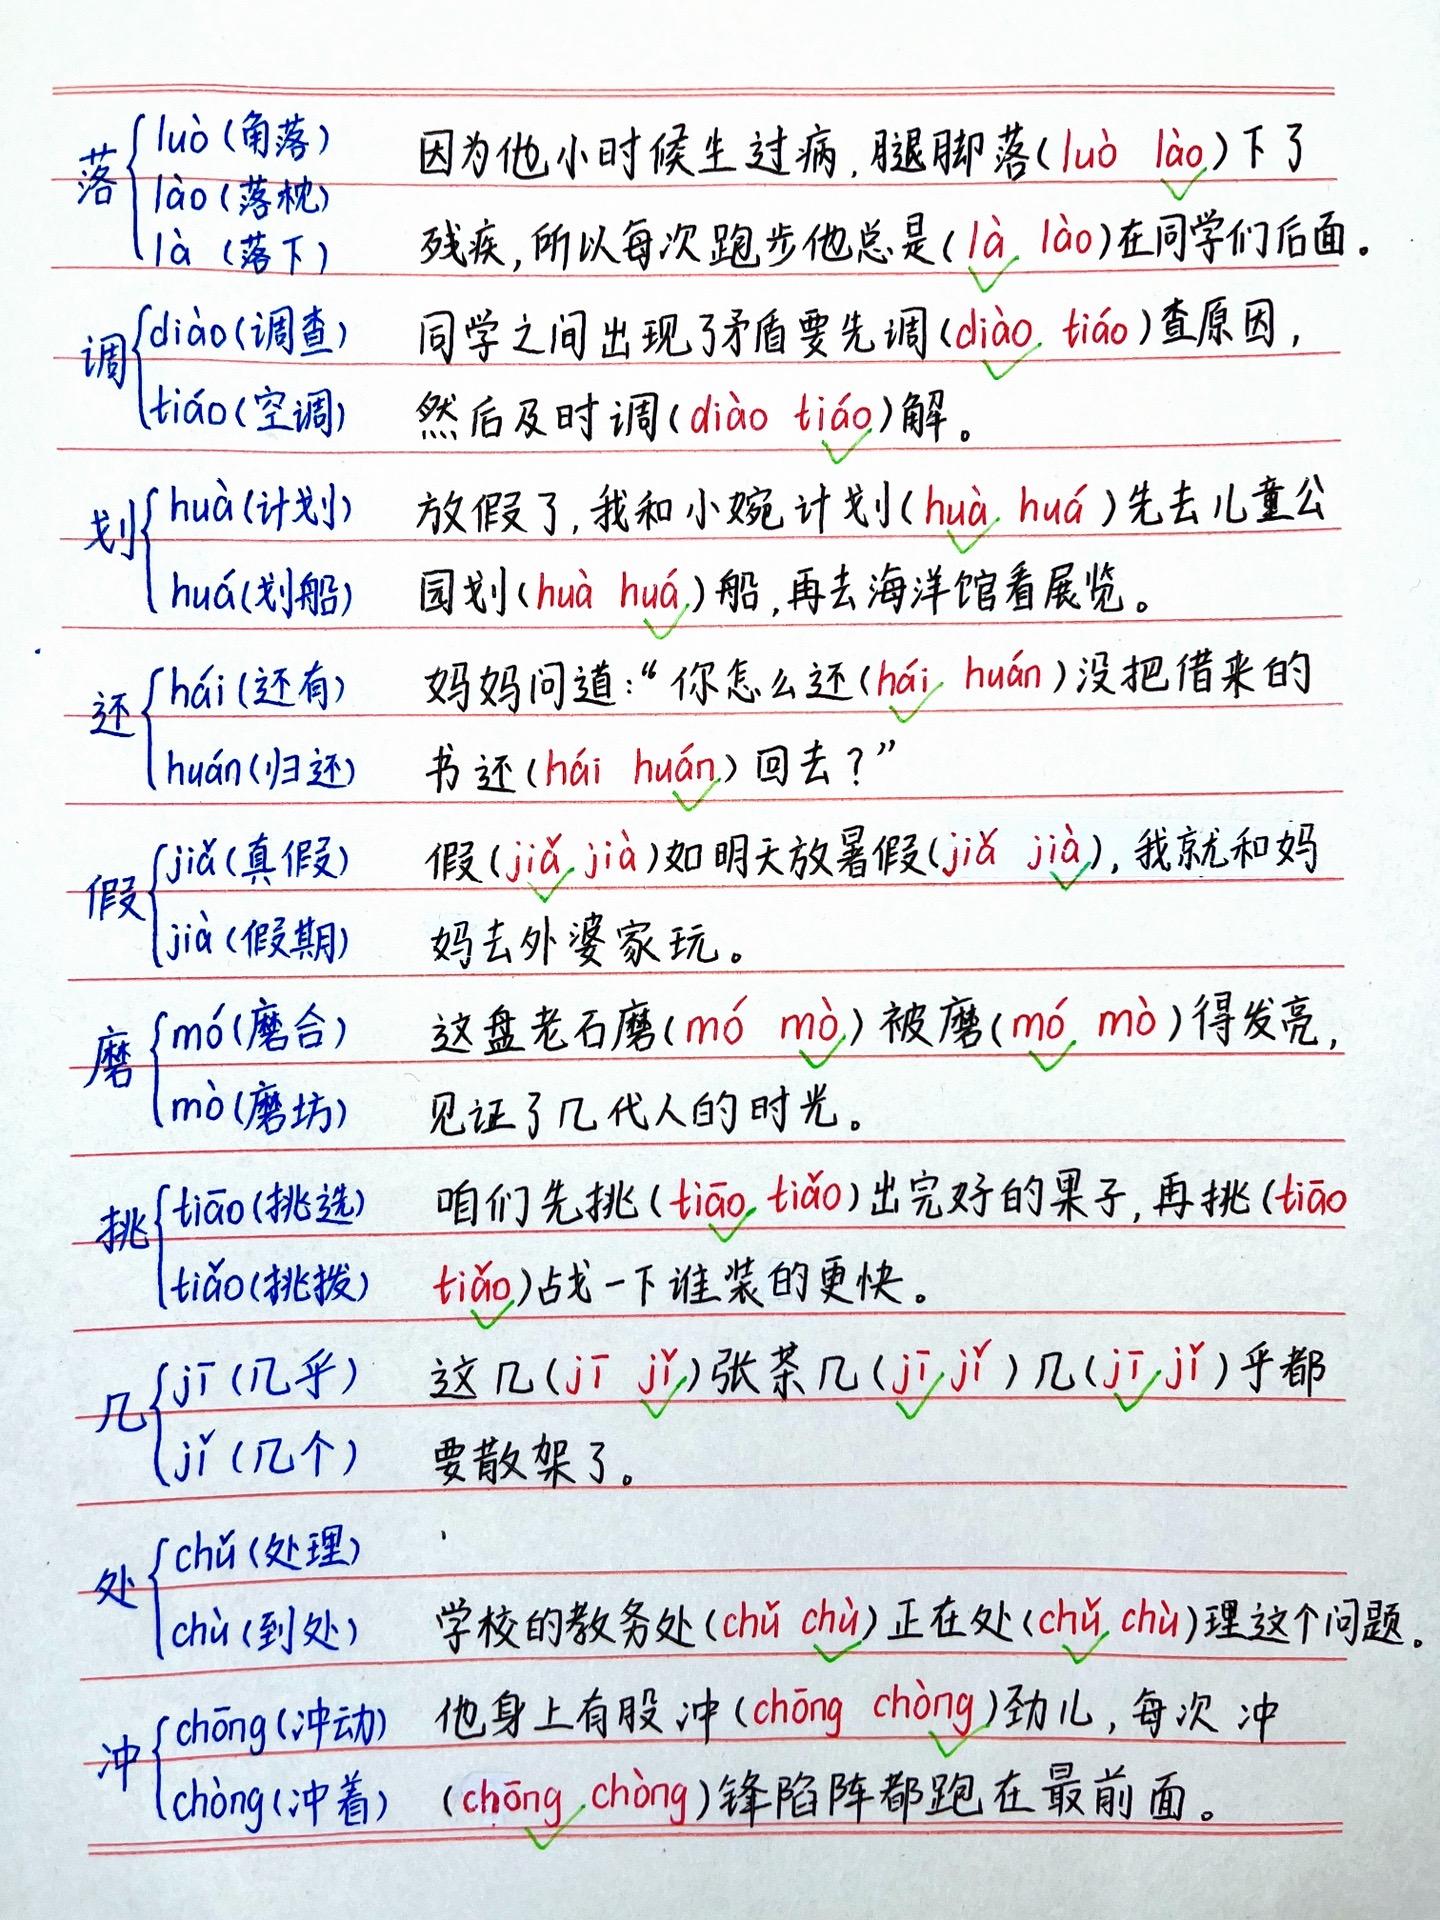 落 luò(角落) 因为他小时候生过病,腿脚落(luò lào)下了
lào(落枕)
là (落下) 残疾,所以每次跑步他总是(là lào)在同学们后面。
调 diào(调查) 同学之间出现了矛盾要先调(diào tiáo)查原因,
tiáo(空调) 然后及时调(diào tiáo)解。
划 huà(计划) 放假了,我和小婉计划(huà huá)先去儿童公
huá(划船) 园划(huà huá)船,再去海洋馆看展览。
还 hái(还有) 妈妈问道:“你怎么还(hái huán)没把借来的
huán(归还) 书还(hái huán)回去?”
假 jiǎ(真假) 假(jiǎ jià)如明天放暑假(jiǎ jià),我就和妈
jià(假期) 妈去外婆家玩。
磨 mó(磨合) 这盘老石磨(mó mò)被磨(mó mò)得发亮,
mò(磨坊) 见证了几代人的时光。
挑 tiāo(挑选) 咱们先挑(tiāo tiǎo)出完好的果子,再挑(tiāo
tiǎo(挑拨) tiǎo)战一下谁装的更快。
几 jī(几乎) 这几(jī jǐ)张茶几(jī jǐ)几(jī jǐ)乎都
jǐ(几个) 要散架了。
处 chǔ(处理)
chù(到处) 学校的教务处(chǔ chù)正在处(chǔ chù)理这个问题。
冲 chōng(冲动) 他身上有股冲(chōng chòng)劲儿,每次冲
chòng(冲着) (chōng chòng)锋陷阵都跑在最前面。